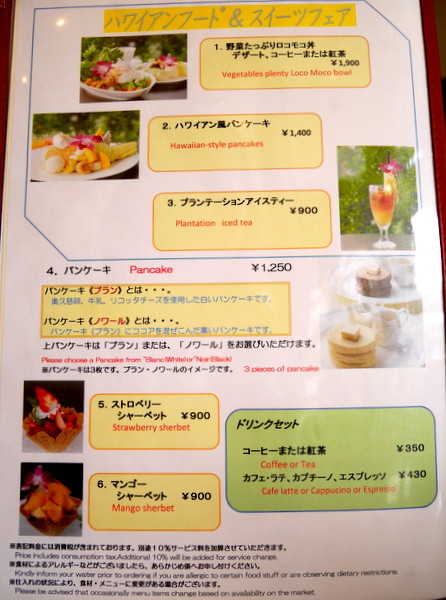 ハワイアンフード & スイーツフェア
1. 野菜たっぷりロコモコ丼
デザート、コーヒーまたは紅茶
¥1,900
Vegetables plenty Loco Moco bowl
2. ハワイアン風パンケーキ
¥1,400
Hawaiian-style pancakes
3. プランテーションアイスティー
¥900
Plantation iced tea
4. パンケーキ Pancake ¥1,250
パンケーキ《ブラン》とは・・・。
奥久慈卵、牛乳、リコッタチーズを使用した白いパンケーキです。
パンケーキ《ノワール》とは・・・。
パンケーキ（ブラン）にココアを混ぜこんだ黒いパンケーキです。
上パンケーキは「ブラン」または、「ノワール」をお選びいただけます。
Please choose a Pancake from "Blanc(White)or"Noir(Black)
※パンケーキは3枚です。ブラン・ノワールのイメージです。 3 pieces of pancake
5. ストロベリー
シャーベット ¥900
Strawberry sherbet
6. マンゴー
シャーベット ¥900
Mango sherbet
ドリンクセット
コーヒーまたは紅茶 ¥350
Coffee or Tea
カフェ・ラテ、カプチーノ、エスプレッソ ¥430
Cafe latte or Cappucino or Espresso
※表記料金には消費税が含まれております。別途10%サービス料を加算させていただきます。
Price includes consumption tax.Additional 10% will be added for service charge.
※食材によるアレルギーなどがございましたら、あらかじめ係へお申し付けください。
Kindly inform your waiter prior to ordering if you are allergic to certain food stuff or are observing dietary restrictions.
※仕入れの状況により、食材・メニューに変更がある場合がございます。
Please be advised that occasionally menu items change based on availability on the market.